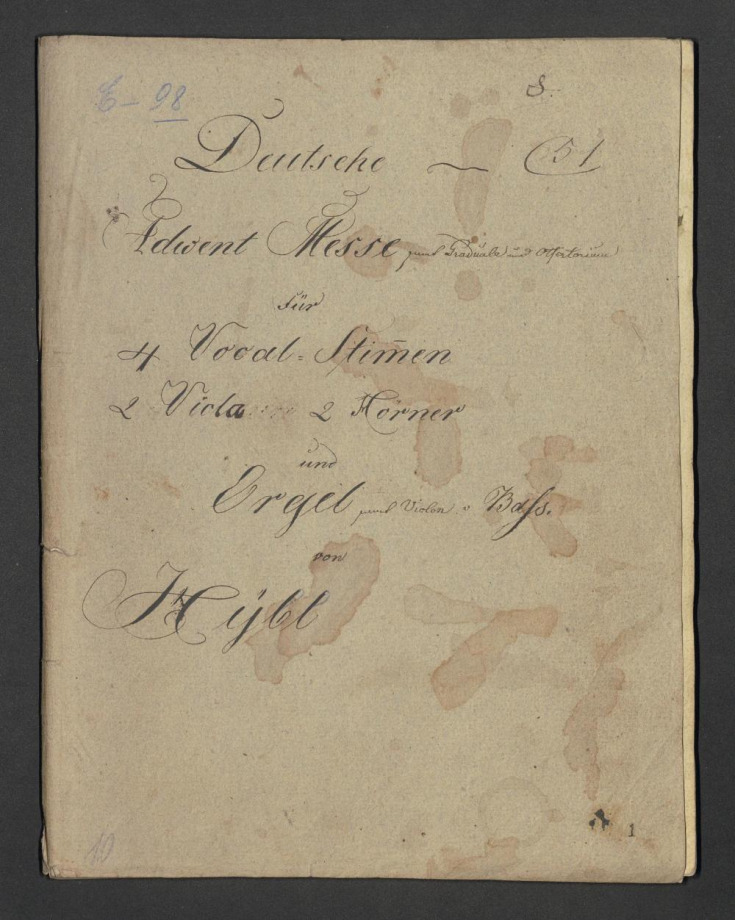 E – 98
S.
Deutsche — 51
Advent Messe samt Graduale und Offertorium
für
4 Vocal = Stim̄en
2 Viola 2 Hörner
und
Orgel samt Violon Baſs.
von
Hÿbl
1
10